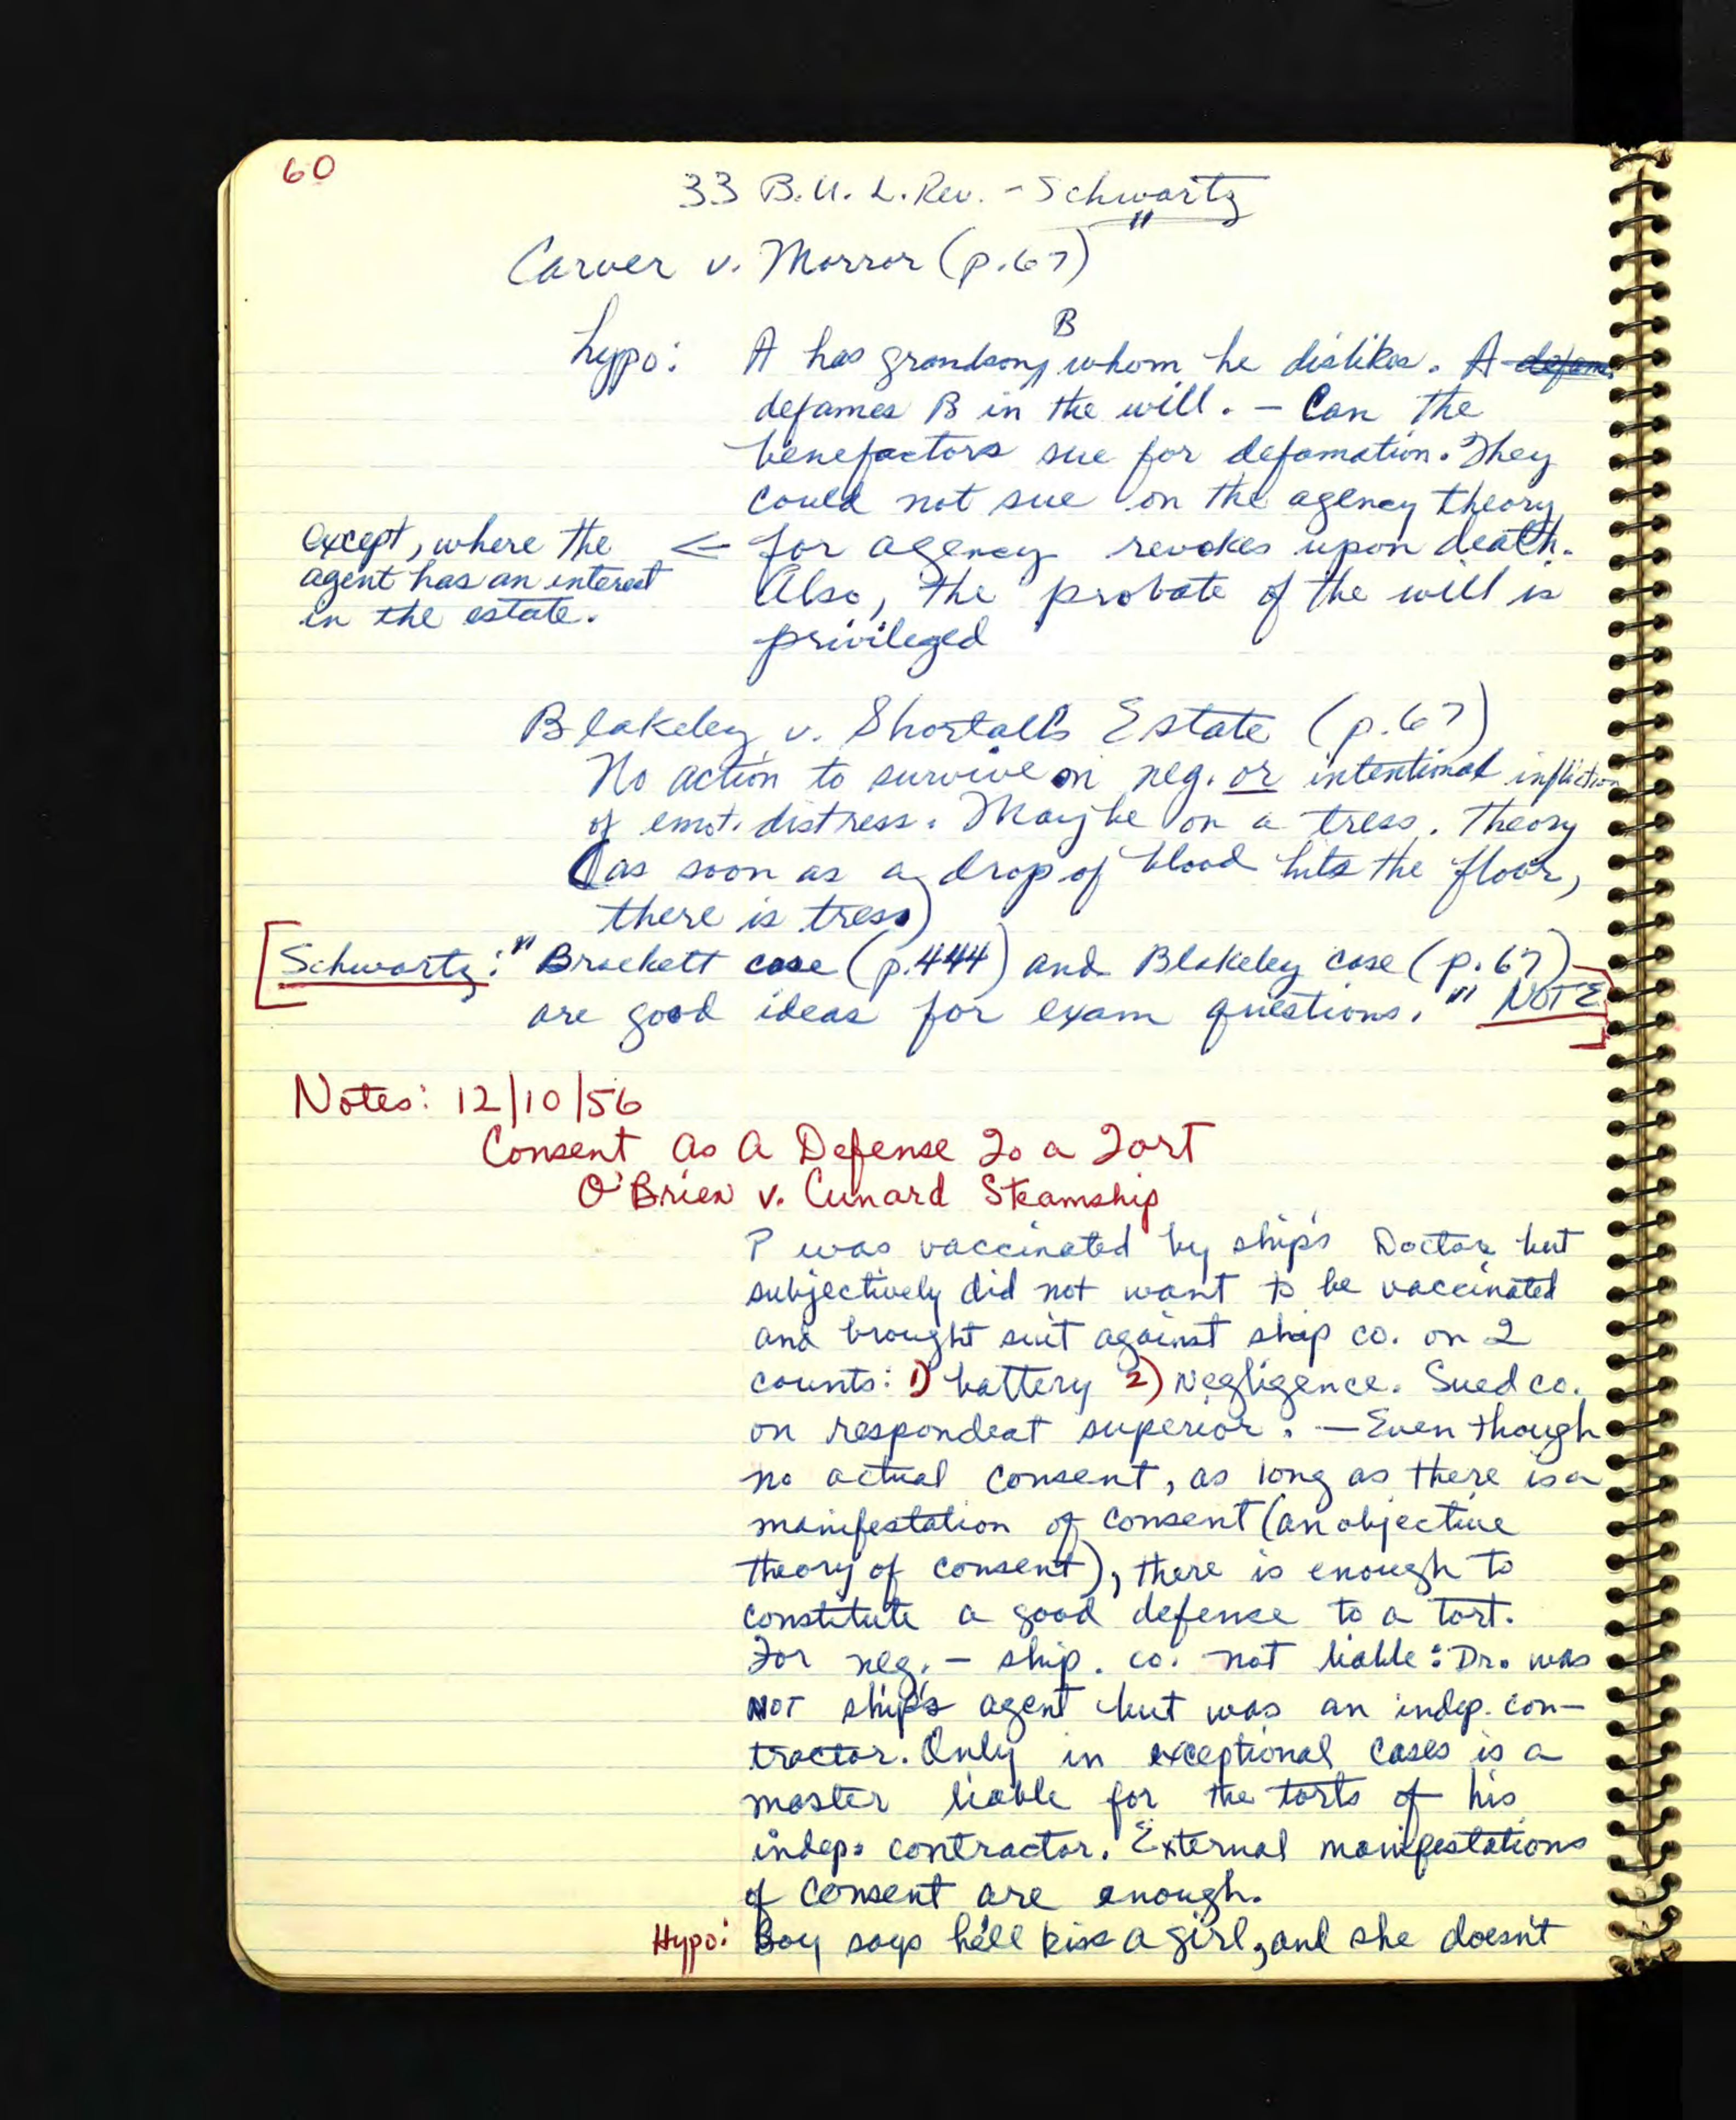 60
33 B.U. L. Rev. - Schwartz
Carver v. Morror (p. 67)
hypo: A has grandson, B whom he dislikes. A defames
defames B in the will. - Can the
benefactors sue for defamation. They
could not sue on the agency theory
for agency revokes upon death.
except, where the ←
agent has an interest
in the estate.
Also, the probate of the will is
privileged
Blakeley v. Shortall's Estate (p. 67)
No action to survive on neg. or intentional infliction
of emot. distress. Maybe on a tress. theory
(as soon as a drop of blood hits the floor,
there is tress)
[Schwartz: "Brackett case (p. 444) and Blakeley case (p. 67)
are good ideas for exam questions." NOTE]
Notes: 12/10/56
Consent As A Defense To a Tort
O'Brien v. Cunard Steamship
P was vaccinated by ship's Doctor but
subjectively did not want to be vaccinated
and brought suit against ship co. on 2
counts: 1) battery 2) Negligence. Sued co.
on respondeat superior. — Even though
no actual consent, as long as there is a
manifestation of consent (an objective
theory of consent), there is enough to
constitute a good defense to a tort.
For neg. - ship. co. not liable: Dr. was
NOT ship's agent but was an indep. con-
tractor. Only in exceptional cases is a
master liable for the torts of his
indep. contractor. External manifestations
of consent are enough.
Hypo: Boy says he'll kiss a girl, and she doesn't